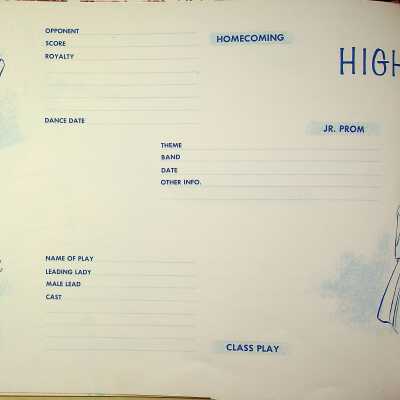 OPPONENT
SCORE
ROYALTY
HOMECOMING
HIGH
DANCE DATE
JR. PROM
THEME
BAND
DATE
OTHER INFO.
NAME OF PLAY
LEADING LADY
MALE LEAD
CAST
CLASS PLAY